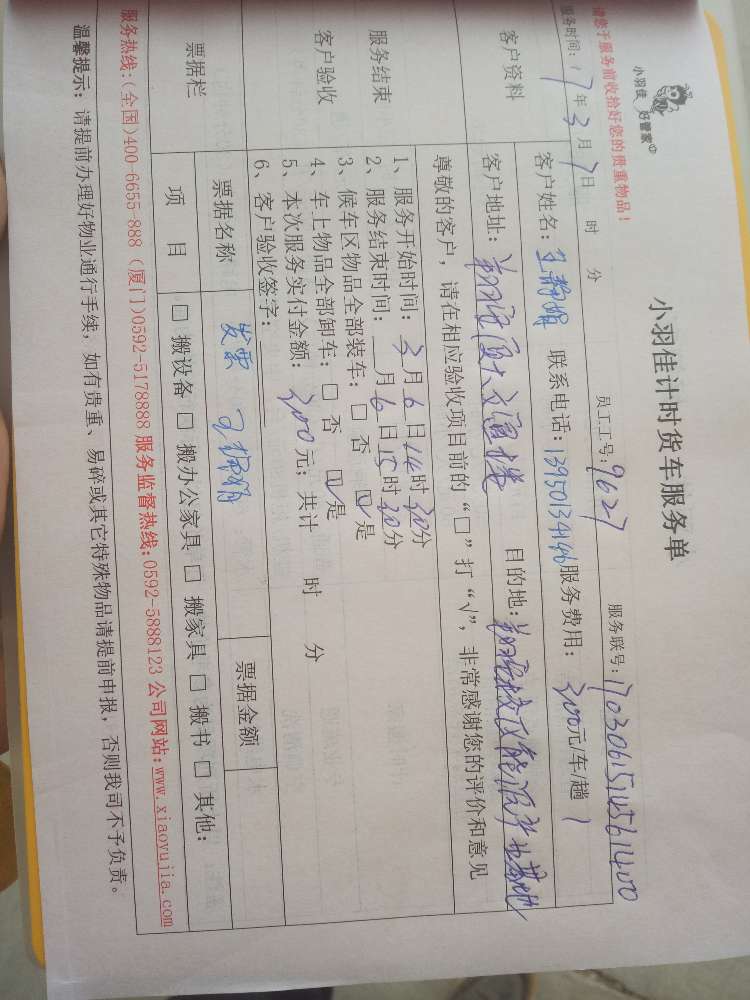 小羽佳 好管家
小羽佳计时货车服务单
请您于服务前收拾好您的贵重物品！
服务时间：17年3月7日 时 分 员工工号：9627 服务联号：17030615145561400
客户资料
客户姓名： 联系电话：13950134146 服务费用：300元/车/趟 1
客户地址：翔安厦大交通楼 目的地：翔安校区能源产业基地
尊敬的客户，请在相应验收项目前的“□”打“√”，非常感谢您的评价和意见
服务结束
客户验收
1、服务开始时间：3月6日14时30分
2、服务结束时间： 月6日15时30分
3、候车区物品全部装车：□ 否 ☑是
4、车上物品全部卸车：□ 否 ☑是
5、本次服务实付金额：300元；共计 时 分
6、客户验收签字：
票据栏
票据名称 发票 票据金额
项 目 □ 搬设备 □ 搬办公家具 □ 搬家具 □ 搬书 □ 其他：
服务热线:(全国)400-6655-888 (厦门)0592-5178888 服务监督热线:0592-5888123 公司网站:www.xiaoyujia.com
温馨提示：请提前办理好物业通行手续，如有贵重、易碎或其它特殊物品请提前申报，否则我司不予负责。